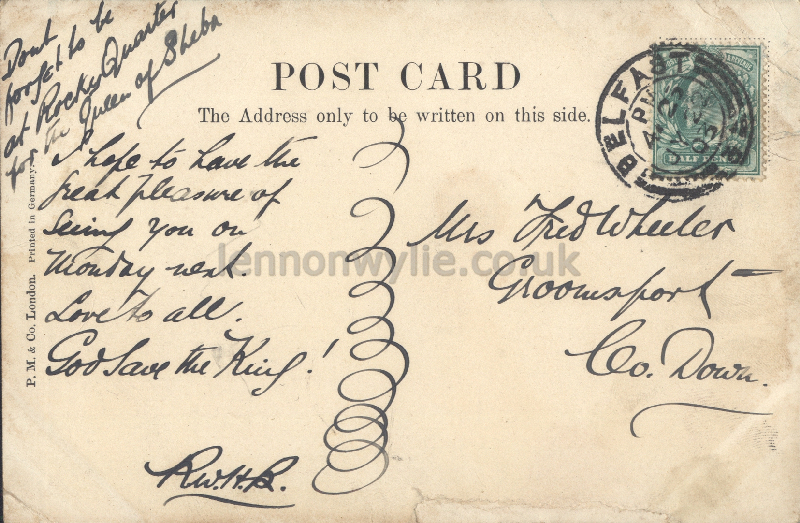 Dont
forget to be
at Rocky Quarter
for the Queen of Sheba
POST CARD
The Address only to be written on this side.
I hope to have the
great pleasure of
seeing you on
Monday next.
Love to all.
God Save the King!
R.W.H.B.
Mrs Fred Wheeler
Groomsport
Co. Down.
BELFAST
HALF PENNY
P. M. & Co. London. Printed in Germany.
lennonwylie.co.uk